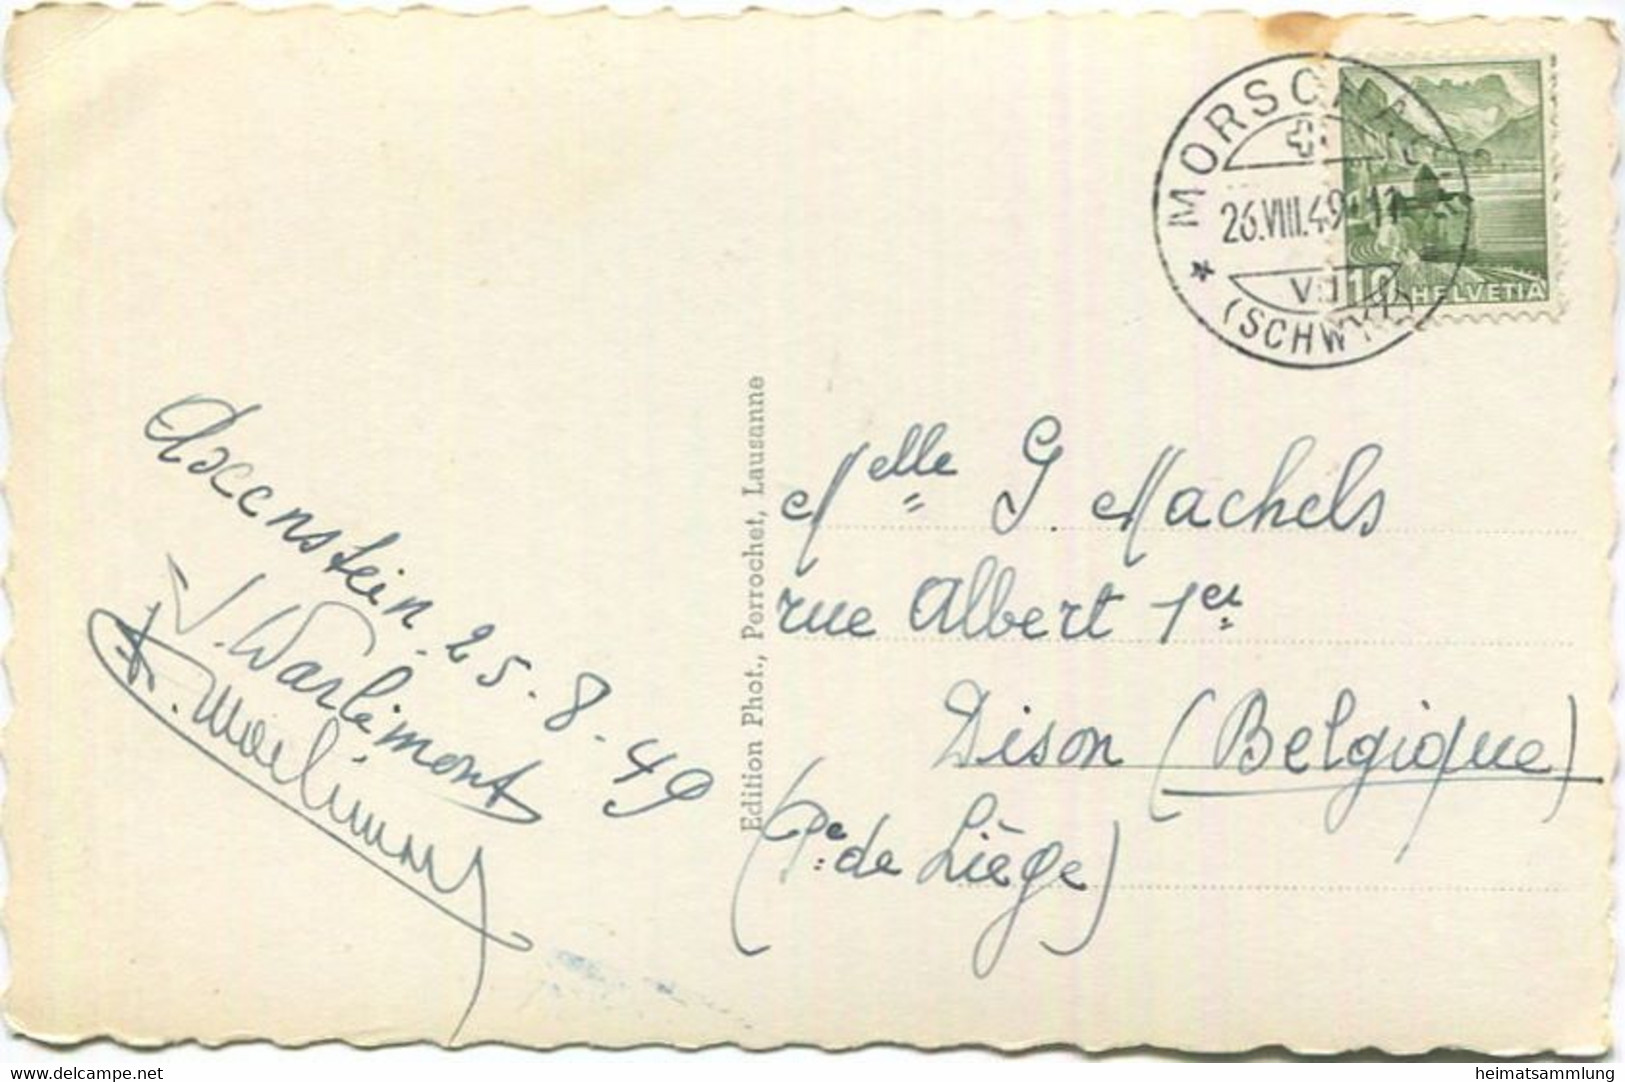 MORSCHA
26.VIII.49-11
(SCHWYZ)
10 HELVETIA
Axenstein. 25-8-49
J. Warlimont
Edition Phot., Perrochet, Lausanne
Melle G. Machels
rue Albert 1er
Dison (Belgique)
(Pce de Liège)
delcampe.net
heimatsammlung